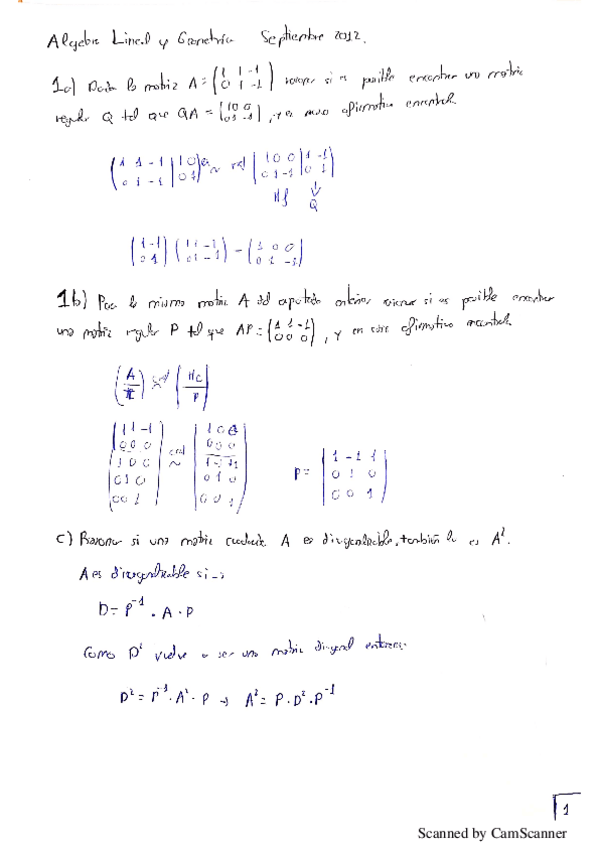 Algebra Lineal y Geometría Septiembre 2012.
1a) Dada la matriz A = (1 1 -1 / 0 1 -1) razonar si es posible encontrar una matriz
regular Q tal que QA = (1 0 0 / 0 1 -1), y en caso afirmativo encontrarla.
(1 1 -1 | 1 0 / 0 1 -1 | 0 1) ~ (1 0 0 | 1 -1 / 0 1 -1 | 0 1)
Hf ↓
Q
(1 -1 / 0 1) (1 1 -1 / 0 1 -1) = (1 0 0 / 0 1 -1)
1b) Para la misma matriz A del apartado anterior razonar si es posible encontrar
una matriz regular P tal que AP = (1 1 -1 / 0 0 0), y en caso afirmativo encontrarla.
(A / I) ~ (Hc / P)
(1 1 -1 / 0 0 0 / 1 0 0 / 0 1 0 / 0 0 1) ~ (1 0 0 / 0 0 0 / 1 -1 1 / 0 1 0 / 0 0 1) P = (1 -1 1 / 0 1 0 / 0 0 1)
c) Razonar si una matriz cuadrada A es diagonalizable, también lo es A².
A es diagonalizable si →
D = P⁻¹ · A · P
Como D² vuelve a ser una matriz diagonal entonces
D² = P⁻¹ · A² · P → A² = P · D² · P⁻¹
1
Scanned by CamScanner